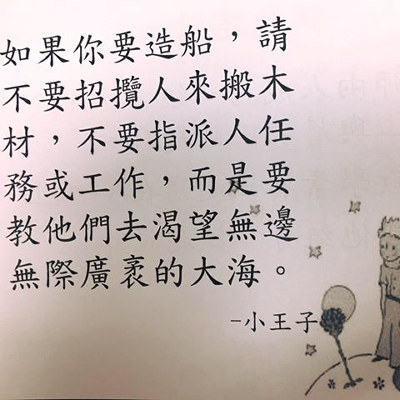 如果你要造船，請
不要招攬人來搬木
材，不要指派人任
務或工作，而是要
教他們去渴望無邊
無際廣袤的大海。
-小王子